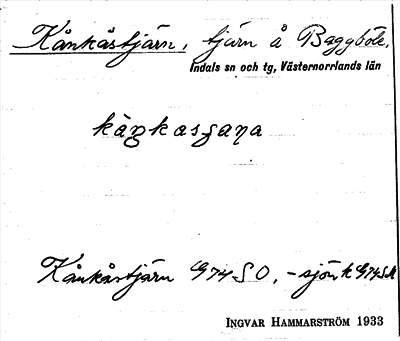 Kånkåstjärn, tjärn å Baggböle,
Indals sn och tg, Västernorrlands län
Kånkåstjärn G74 SO, -sjön k G74 SM
INGVAR HAMMARSTRÖM 1933